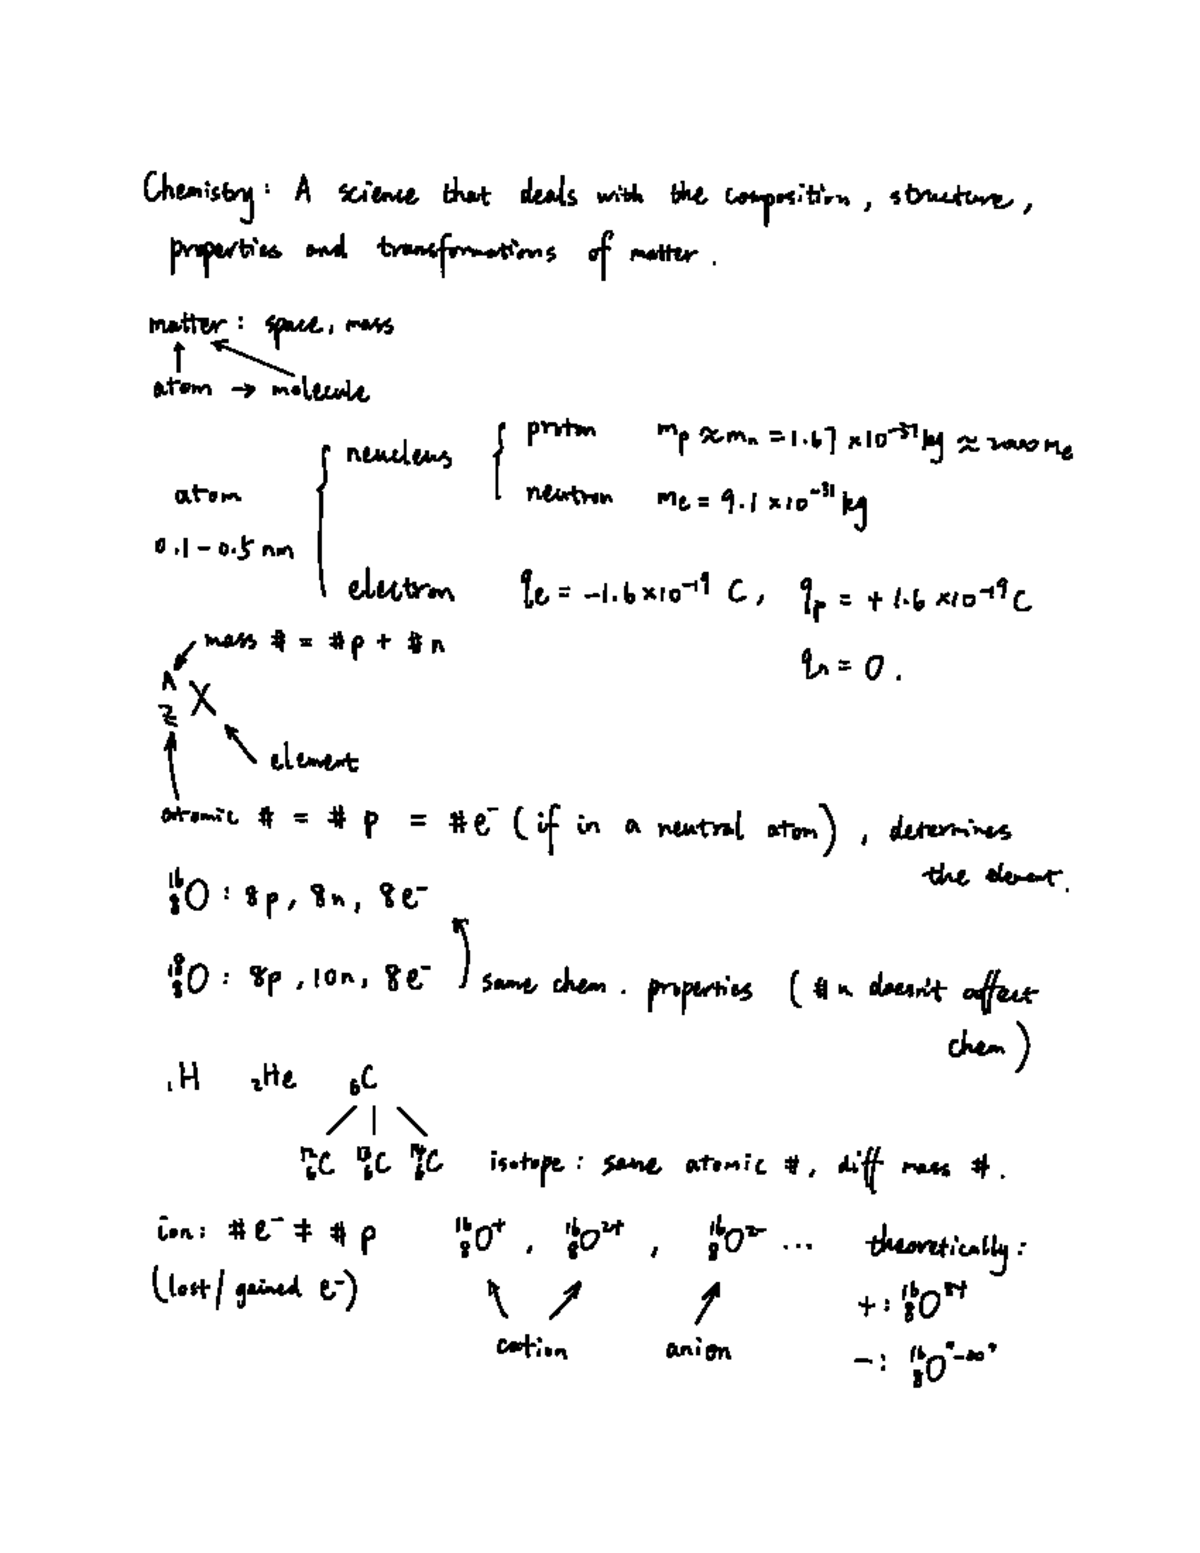 Chemistry: A science that deals with the composition, structure,
properties and transformations of matter.
matter: space, mass
atom → molecule
atom
0.1 - 0.5 nm
neucleus
proton mp ≈ mn = 1.67 × 10⁻³⁷ kg ≈ 2000 me
neutron me = 9.1 × 10⁻³¹ kg
electron qe = -1.6 × 10⁻¹⁹ C, qp = + 1.6 × 10⁻¹⁹ C
qn = 0.
mass # = # p + # n
A
Z X
element
atomic # = # p = # e⁻ (if in a neutral atom), determines
the element.
¹⁶₈O : 8p, 8n, 8e⁻
¹⁸₈O : 8p, 10n, 8e⁻ same chem. properties (# n doesn't affect
chem)
₁H ₂He ₆C
¹²₆C ¹³₆C ¹⁴₆C isotope: same atomic #, diff mass #.
ion: # e⁻ ≠ # p ¹⁶₈O⁺, ¹⁶₈O²⁺, ¹⁶₈O²⁻ ... theoretically:
(lost/gained e⁻) + : ¹⁶₈O⁸⁺
cation anion - : ¹⁶₈O"⁻∞"